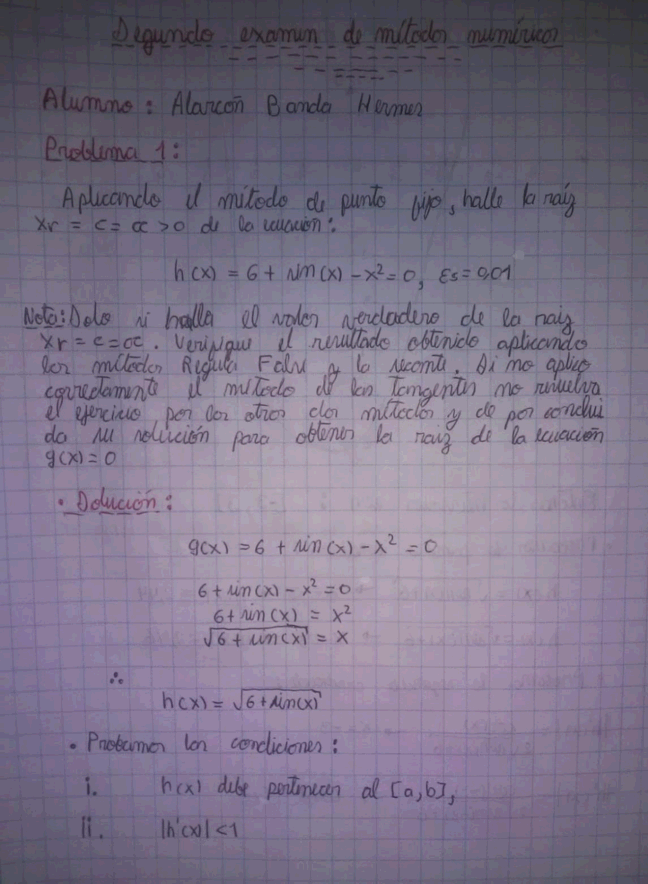 Segundo examen de métodos numéricos
Alumno: Alarcón Banda Hermes
Problema 1:
Aplicando el método de punto fijo, halle la raíz
Xr = c = α > 0 de la ecuación:
h(x) = 6 + sin(x) - x² = 0, Es = 0,01
Nota: Solo si halla el valor verdadero de la raiz
Xr = c = α. Verifique el resultado obtenido aplicando
los métodos Regula Falsi y la secante. Si no aplico
correctamente el método de las tangentes no resuelva
el ejercicio por los otros dos métodos y de por conclui
da su solución para obtener la raiz de la ecuación
g(x) = 0
• Solución:
g(x) = 6 + sin(x) - x² = 0
6 + sin(x) - x² = 0
6 + sin(x) = x²
√6 + sin(x) = x
∴
h(x) = √6 + sin(x)
• Probamos las condiciones:
i. h(x) debe pertenecer al [a,b],
ii. |h'(x)| < 1